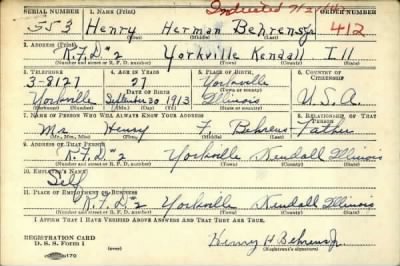 SERIAL NUMBER 1. NAME (Print) Inducted ORDER NUMBER
553 Henry Herman Behrens Jr 412
(First) (Middle) (Last)
2. ADDRESS (Print)
R.F.D. #2 Yorkville Kendall Ill
(Number and street or R. F. D. number) (Town) (County) (State)
3. TELEPHONE 4. AGE IN YEARS 5. PLACE OF BIRTH 6. COUNTRY OF CITIZENSHIP
3-8127 27 Yorkville
DATE OF BIRTH (Town or county)
Yorkville September 30, 1913 Illinois U.S.A.
(Exchange) (Number) (Mo.) (Day) (Yr.) (State or country)
7. NAME OF PERSON WHO WILL ALWAYS KNOW YOUR ADDRESS 8. RELATIONSHIP OF THAT PERSON
Mr. Henry F. Behrens Father
(Mr., Mrs., Miss) (First) (Middle) (Last)
9. ADDRESS OF THAT PERSON
R.F.D. #2 Yorkville Kendall Illinois
(Number and street or R. F. D. number) (Town) (County) (State)
10. EMPLOYER'S NAME
Self
11. PLACE OF EMPLOYMENT OR BUSINESS
R.F.D. #2 Yorkville Kendall Illinois
(Number and street or R. F. D. number) (Town) (County) (State)
I AFFIRM THAT I HAVE VERIFIED ABOVE ANSWERS AND THAT THEY ARE TRUE.
REGISTRATION CARD Henry H Behrens Jr.
D. S. S. Form 1 (Registrant's signature)